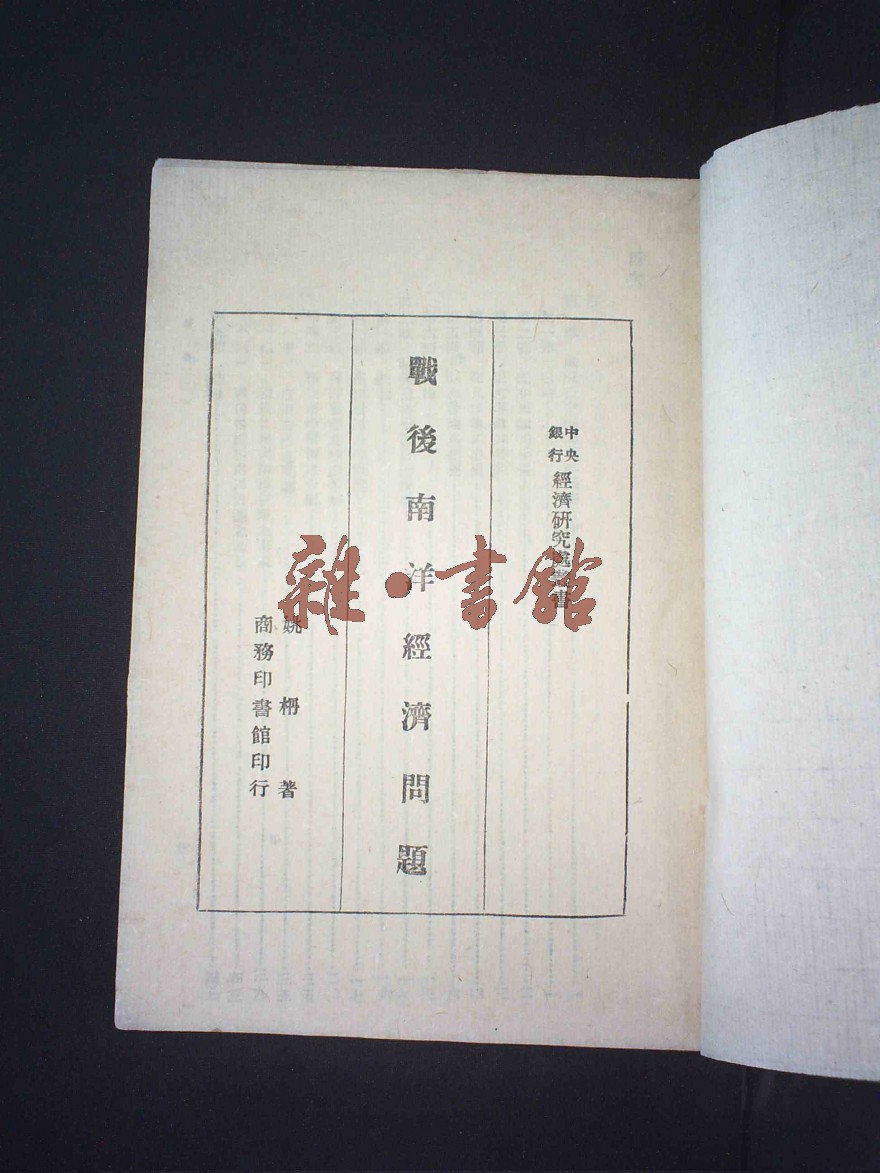 中央銀行經濟研究處叢書
戰後南洋經濟問題
姚枬著
商務印書館印行
雜·書館